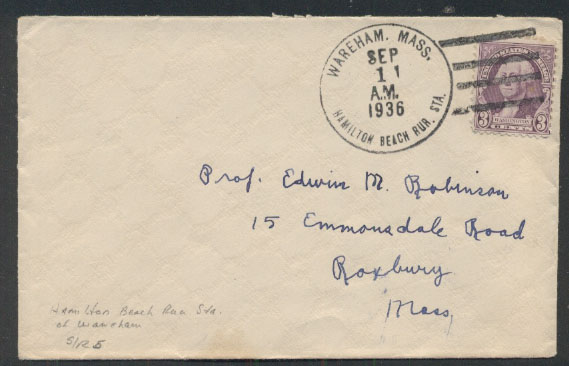 WAREHAM, MASS.
SEP
1 1
A.M.
1936
HAMILTON BEACH RUR. STA.
3 WASHINGTON 3
Prof. Edwin M. Robinson
15 Emmonsdale Road
Roxbury
Mass,
Hamilton Beach Rur Sta.
of Wareham